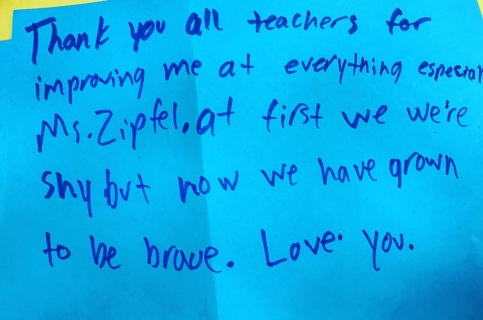 Thank you all teachers for
improving me at everything especial
Ms. Zipfel. at first we we're
shy but now we have grown
to be brave. Love you.